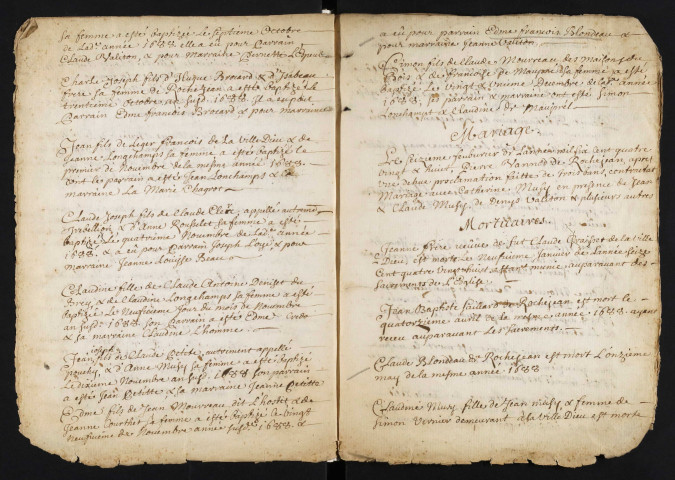 sa femme a esté baptizée le septième Octobre
de lad. année 1688 elle a eu pour Parrain
Claude Valiton, & pour Marraine Pernette
Charle Joseph fils d'Hugue Brocard & d'Isabeau
frere sa femme de Rochejean a esté baptizé le
trentieme Octobre an susd. 1688. il a eu pour
Parrain Edme françois Brocard & pour marraine
Jean fils de Leger françois de la Ville Dieu & de
Jeanne Longchamps sa femme a esté baptizé le
premier de Novembre de la mesme année 1688.
dont le parrain a esté Jean Longchamps & la
marraine la Marie Chagrot
Claude Joseph fils de Claude Clerc, appellé autrement
& d'Anne Rousselet sa femme a esté
baptizé le quatrième Novembre de lad. année
1688. & a eu pour Parrain Joseph & pour
marraine Jeanne Louisse
Claudine fille de Claude Antoine Denisot du
Brey, & de Claudine Longchamps sa femme a esté
baptizée le Neufieme jour du mois de Novembre
an susd. 1688 son parrain a esté Edme
& sa marraine Claudine Lhomme.
Jean Joseph fils de Claude Petite, autrement appellé
& d'Anne Musy sa femme a esté baptizé
le dixieme Novembre an susd. 1688. son parrain
a esté Jean Petitte & sa marraine Jeanne Petitte
Edme fils de Jean Mourreau dit L'hostet & de
Jeanne Courthet sa femme a esté baptizé le vingt
Neufvieme de Novembre année susd. 1688. &
a eu pour parrain Edme françois Blondeau &
pour marraine Jeanne Valiton.
Simon fils de Claude Mourreau des Maisons du
Bois & de françoise de Maupré sa femme a esté
baptizé le vingt & unieme Decembre de lad. année
1688. ses parrain & marraine ont esté Simon
Louchampt & Claudine de Maupret
Mariage.
Le sixieme feuvrier de l'an mil six cent quatre
vingt & huict Pierre Vannod de Rochejean, apres
une debue proclamation faitte de trois bans, contractat
Mariage avec Catherine Musy en presence de Jean
& Claude Musy, de Denys Valiton & plusieurs autres
Mortuaires.
Jeanne frere veuve de fut Claude de la Ville
Dieu est morte le Neufuieme Janvier de l'année seize
Cent quatre vingt huict estant munie auparavant des
Sacrements de l'Eglise.
Jean Baptiste de Rochejean est mort le
quatorzieme avril de la mesme année 1688. ayant
receu auparavant les sacrements.
Claude Blondeau de Rochejean est mort L'onzieme
may de la mesme année 1688
Claudine Musy fille de Jean Musy & femme de
Simon Vernier demeurant a la Ville Dieu est morte